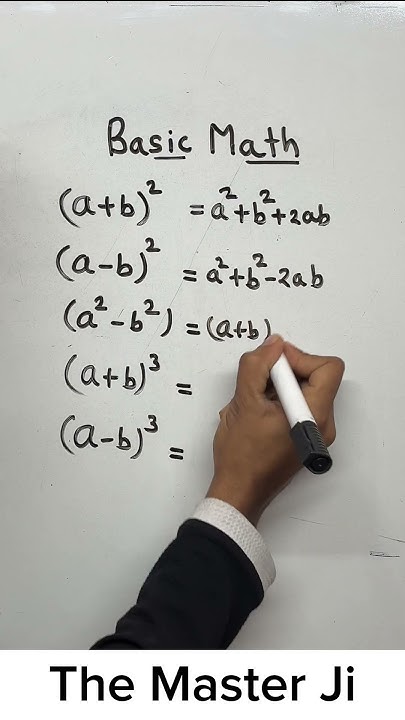 Basic Math
(a+b)² = a²+b²+2ab
(a-b)² = a²+b²-2ab
(a²-b²) = (a+b)
(a+b)³ =
(a-b)³ =
The Master Ji